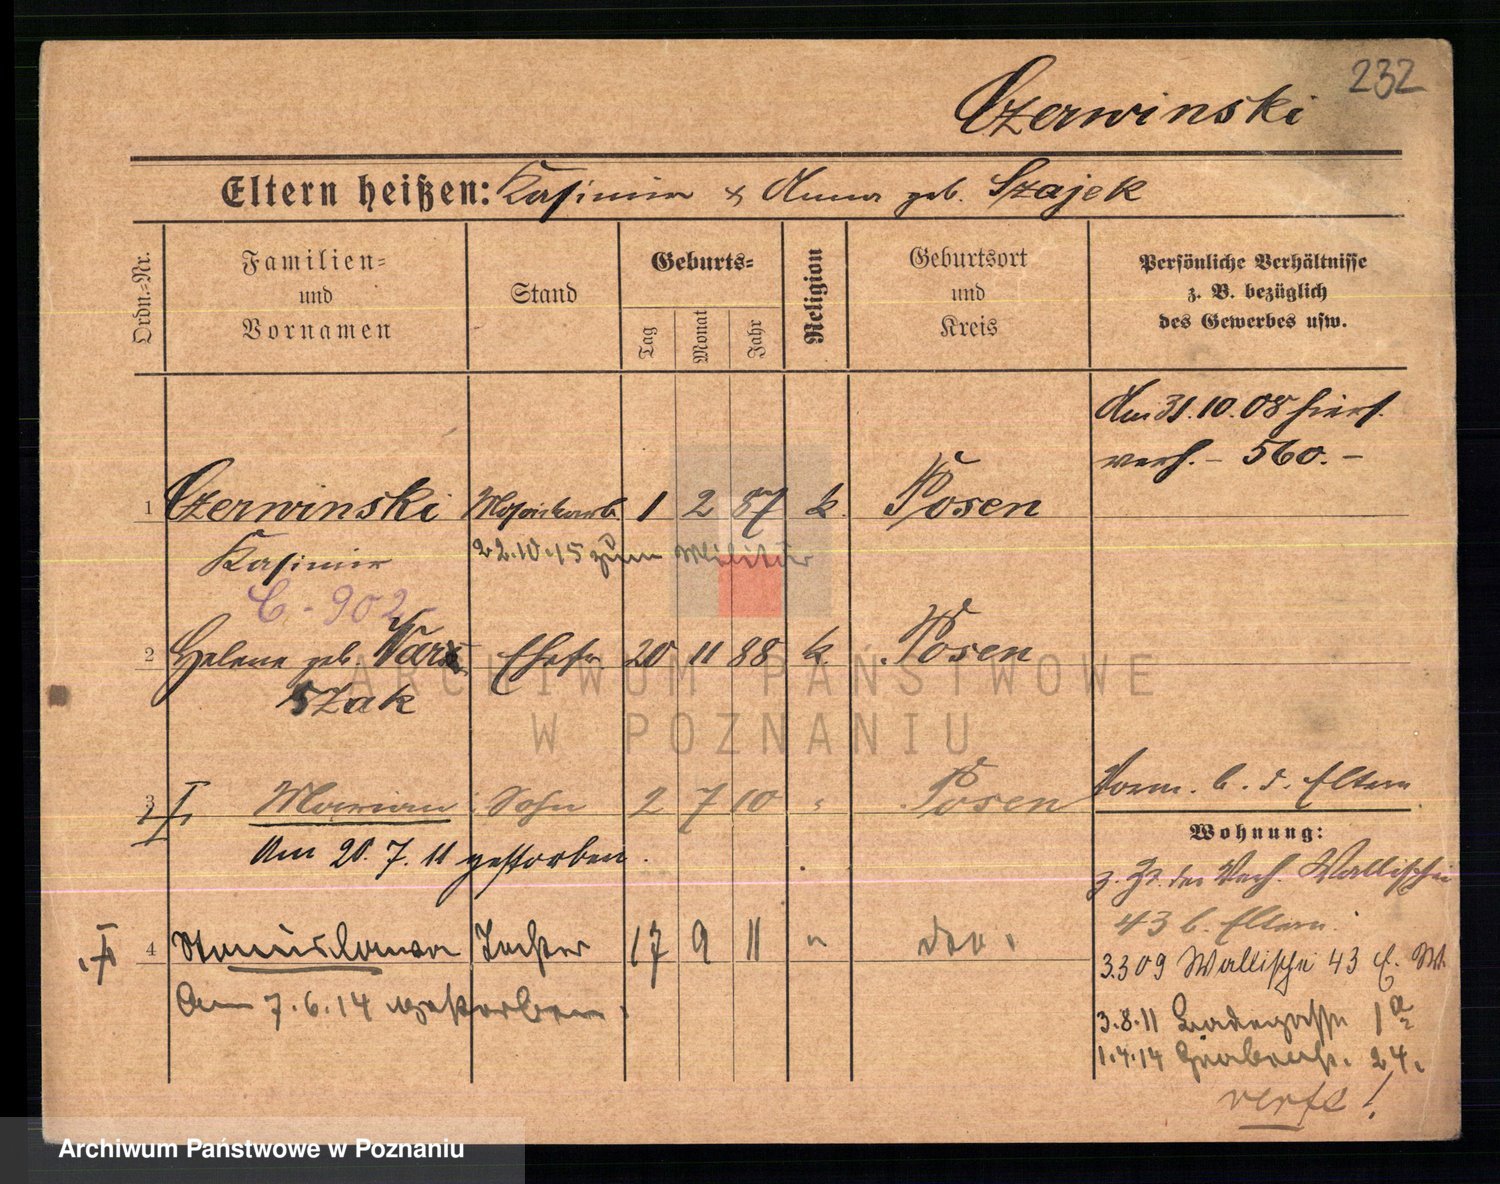 232
Czerwinski
Eltern heißen: Kasimir & Anna geb. Szajek
Ordn.-Nr.
Familien-
und
Vornamen
Stand
Geburts-
Tag
Monat
Jahr
Religion
Geburtsort
und
Kreis
Persönliche Verhältnisse
z. B. bezüglich
des Gewerbes usw.
Am 31.10.08 hiers.
verh. – 560. –
1 Czerwinski 1 2 87 k. Posen
Kasimir 22.10.15 zum Militär
C. - 902
2 Helene geb. Ehefr. 20 11 88 k. Posen
szak
3 Marian Sohn 2 7 10 " Posen
Am 20. 7. 11 gestorben.
Vorm. b. d. Eltern
Wohnung:
z. Zt. der Verh. Wallischei
43 b. Eltern.
4 Stanislawa Tochter 17 9 11 " do.
Am 7.6.14 gestorben.
3.3.09 Wallischei 43 E. W.
3.8.11 1a
1.4.14 24.
ARCHIWUM PAŃSTWOWE
W POZNANIU
Archiwum Państwowe w Poznaniu